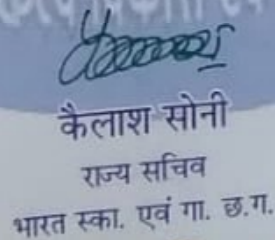 कैलाश सोनी
राज्य सचिव
भारत स्का. एवं गा. छ.ग.